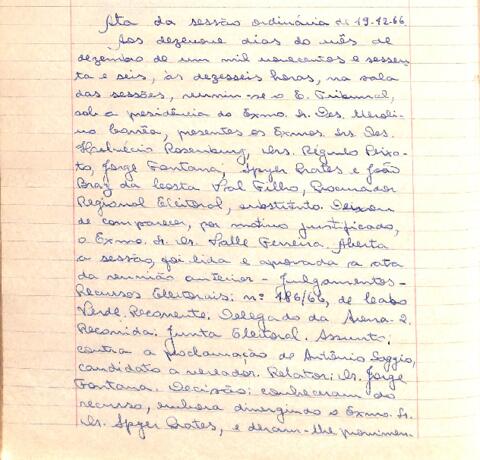 Ata da sessão ordinária de 19-12-66.
Aos dezenove dias do mês de
dezembro de um mil novecentos e sessen-
ta e seis, às dezesseis horas, na sala
das sessões, reuniu-se o E. Tribunal,
sob a presidência do Exmo. Sr. Des. Meroli-
no Corrêa, presentes os Exmos. Srs. Des.
Helvécio Rosenburg, Drs. Régulo Peixo-
to, Jorge Fontana, Spyer Prates e João
Braz da Costa Val Filho, Procurador
Regional Eleitoral, substituto. Deixou
de comparecer, por motivo justificado,
o Exmo. Sr. Dr. Valle Ferreira. Aberta
a sessão, foi lida e aprovada a ata
da reunião anterior - Julgamentos -
Recursos Eleitorais: nº 186/66, de Cabo
Verde. Recorrente, Delegado da Arena-2.
Recorrida: Junta Eleitoral. Assunto:
contra a proclamação de Antônio Saggio,
candidato a vereador. Relator: Dr. Jorge
Fontana. Decisão: conheceram do
recurso, embora divergindo o Exmo. Sr.
Dr. Spyer Prates, e deram-lhe provimen-